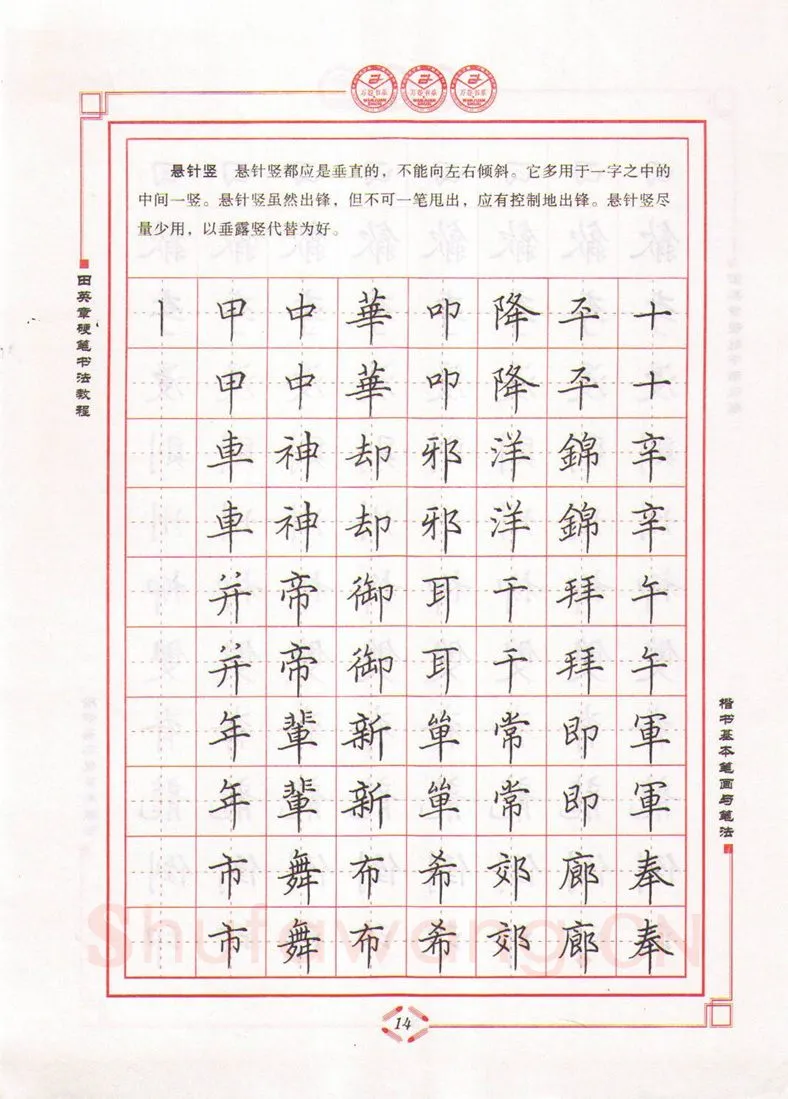 万卷书系 万卷书系 万卷书系
WANJUAN SHUXI WANJUAN SHUXI WANJUAN SHUXI
悬针竖 悬针竖都应是垂直的，不能向左右倾斜。它多用于一字之中的
中间一竖。悬针竖虽然出锋，但不可一笔甩出，应有控制地出锋。悬针竖尽
量少用，以垂露竖代替为好。
田英章硬笔书法教程
丨甲中華叩降平十
甲中華叩降平十
車神却邪洋錦辛
車神却邪洋錦辛
并帝御耳干拜午
并帝御耳干拜午
年輩新単常即軍
年輩新単常即軍
市舞布希郊廊奉
市舞布希郊廊奉
楷书基本笔画与笔法
Shufawang.CN
14